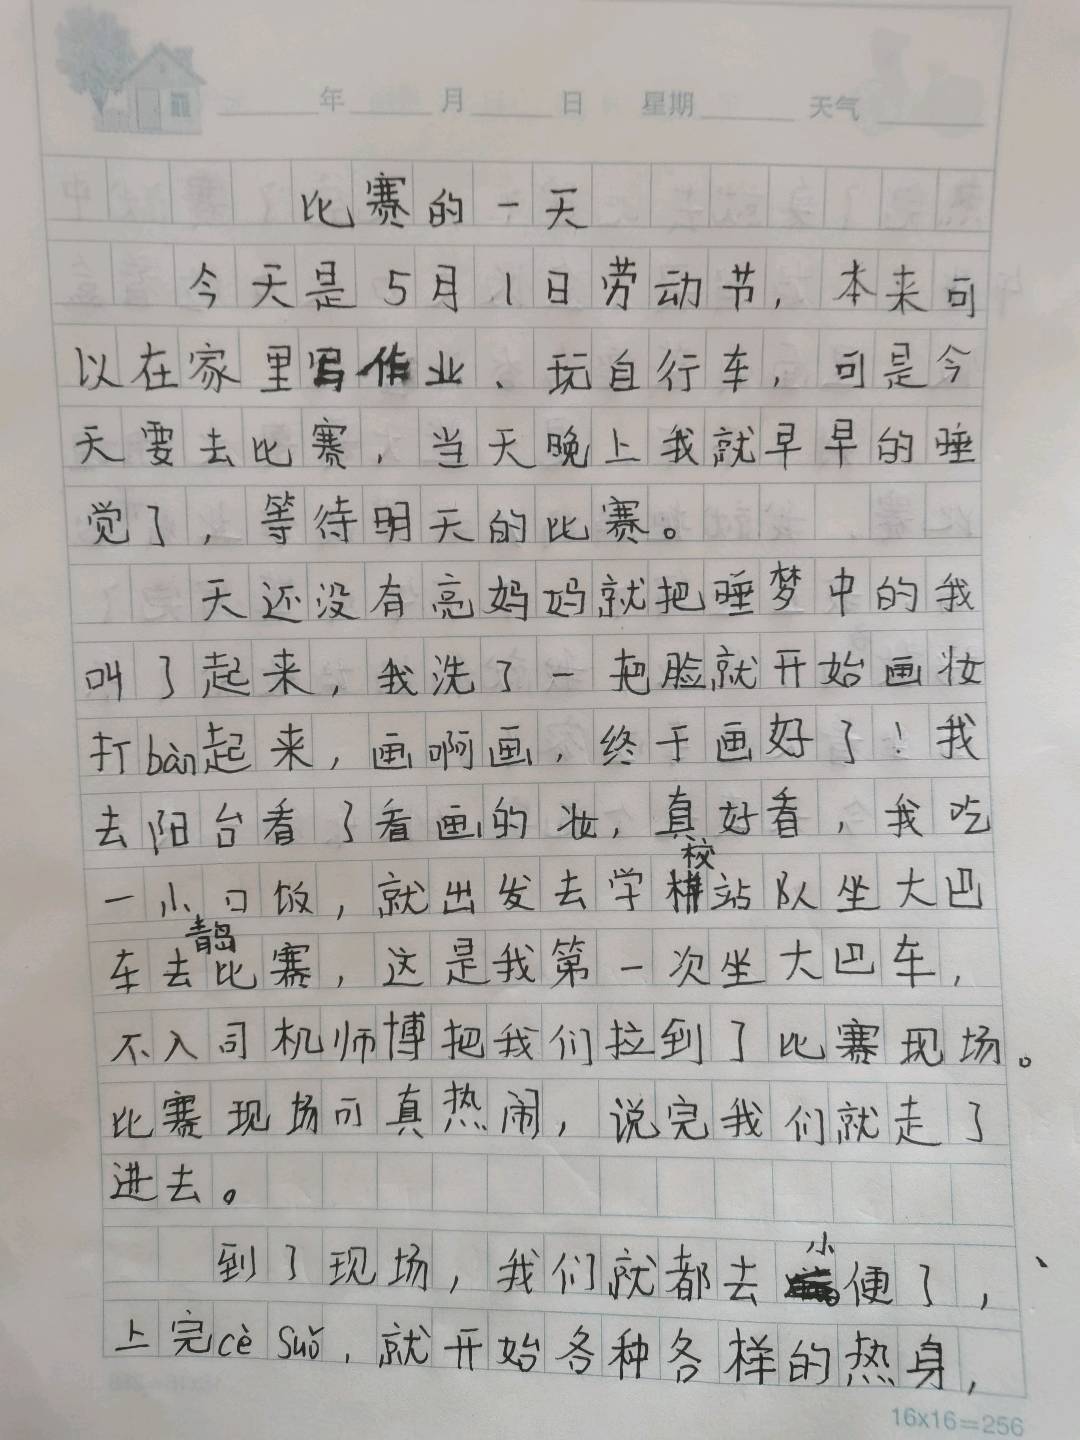 年 月 日 星期 天气
比赛的一天
今天是5月1日劳动节，本来可
以在家里写作业、玩自行车，可是今
天要去比赛，当天晚上我就早早的睡
觉了，等待明天的比赛。
天还没有亮妈妈就把睡梦中的我
叫了起来，我洗了一把脸就开始画妆
打bàn起来，画啊画，终于画好了！我
去阳台看了看画的妆，真好看，我吃
一小口饭，就出发去学校站队坐大巴
车去青岛比赛，这是我第一次坐大巴车，
不入司机师博把我们拉到了比赛现场。
比赛现场可真热闹，说完我们就走了
进去。
到了现场，我们就都去小便了，
上完cè suǒ，就开始各种各样的热身，
16x16=256